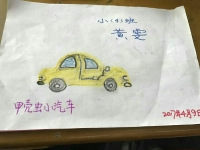 小(3)班
黄雯
甲壳虫小汽车
2017年4月9日